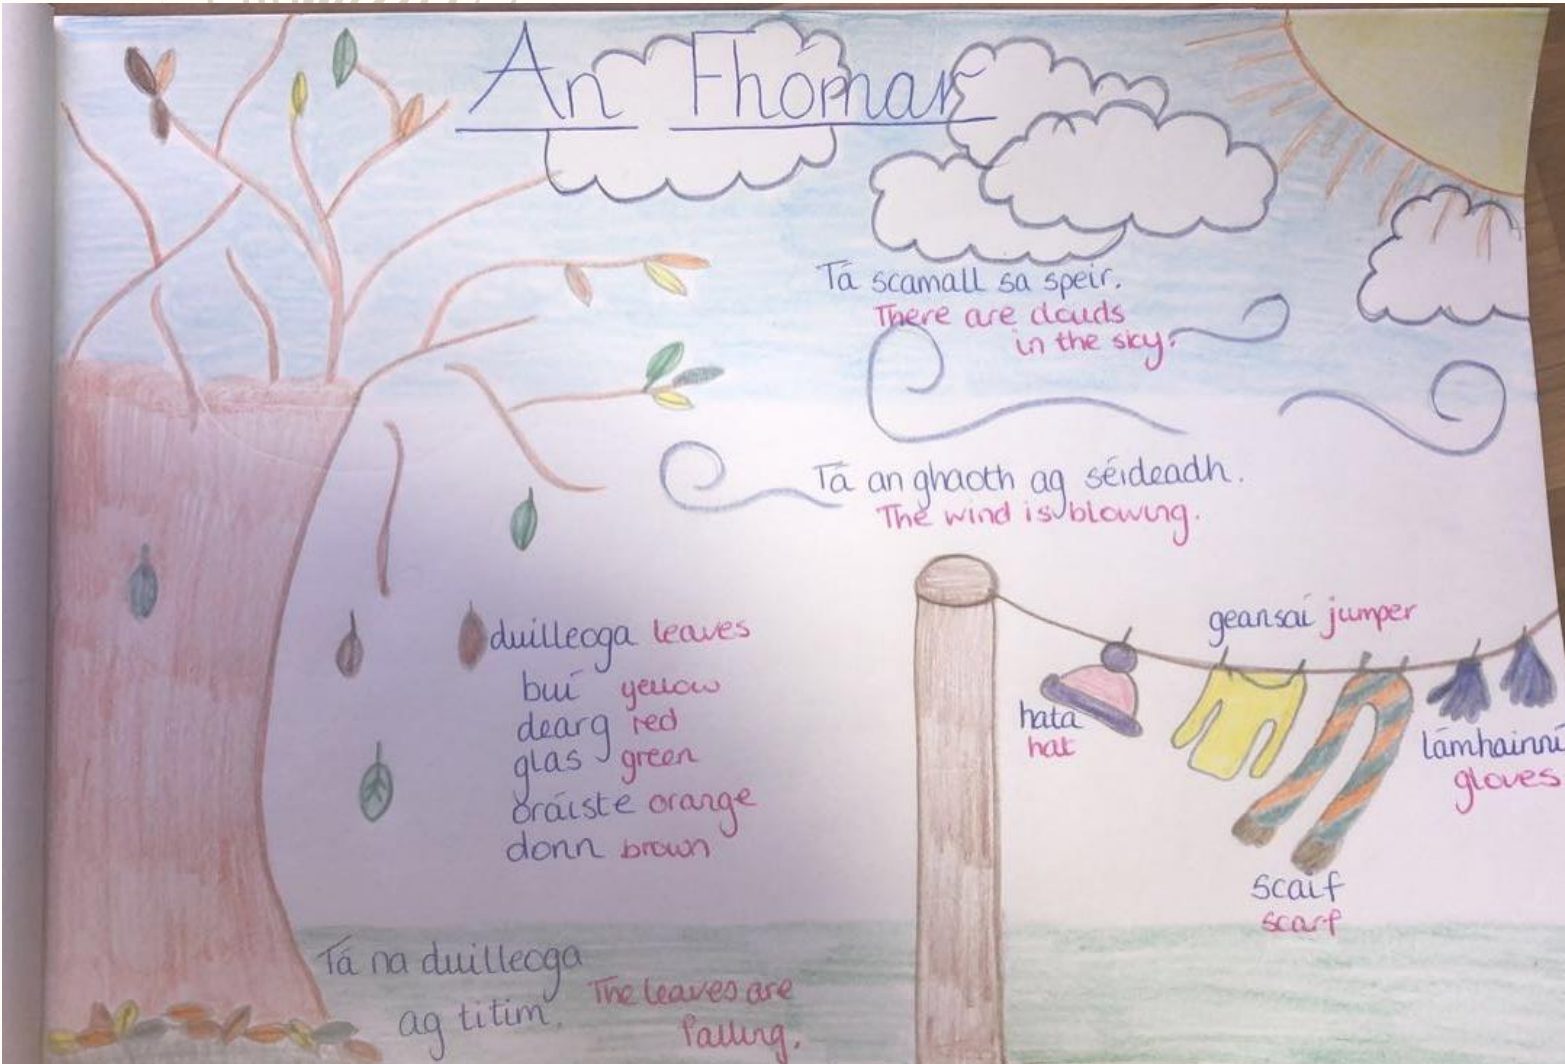 An Fhómar
Tá scamall sa speir.
There are clouds
in the sky.
Tá an ghaoth ag séideadh.
The wind is blowing.
duilleoga leaves
buí yellow
dearg red
glas green
oráiste orange
donn brown
geansaí jumper
hata
hat
lámhainní
gloves
scaif
scarf
Tá na duilleoga
ag titim.
The leaves are
falling.